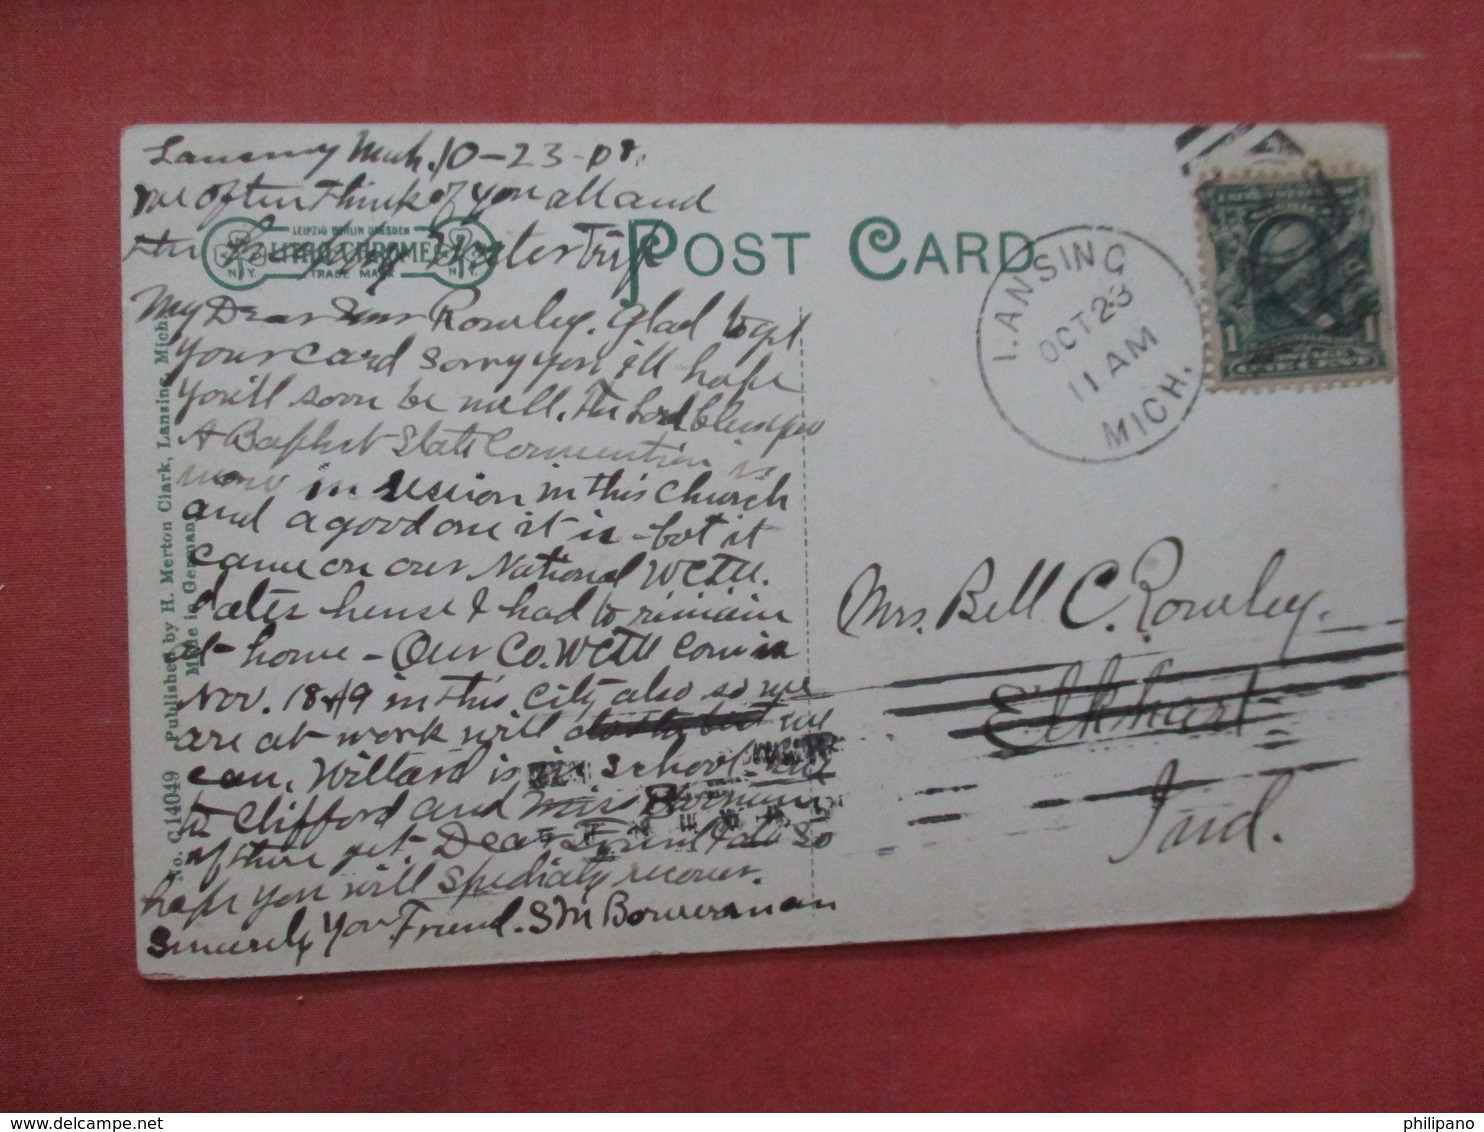 Lansing Mich. 10-23-08.
We often think of you all and
the Water Trip
LEIPZIG BERLIN DRESDEN
LITHO-CHROME
N.Y. TRADE MARK N.Y.
POST CARD
My Dear Rowley. Glad to get
your card sorry you ill hope
you'll soon be well. The Lord bless you
A Baptist State Convention is
now in session in this church
and a good one it is - but it
came on our National WCTU.
dates hense I had to remain
at home - Our Co. WCTU Con in
Nov. 18 & 19 in this city also so we
are at work will do the best we
can, Willard is in school
to Clifford and Miss
of there yet Dear Friend I do so
hope you will speedialy recover.
Sincerely Your Friend. S M Bowerman
No. G 14049 Published by H. Merton Clark, Lansing, Mich.
Made in Germany
LANSING
OCT 23
11 AM
MICH.
1 1
Mrs. Bell C. Rowley.
Elkhart
Ind.
philipano